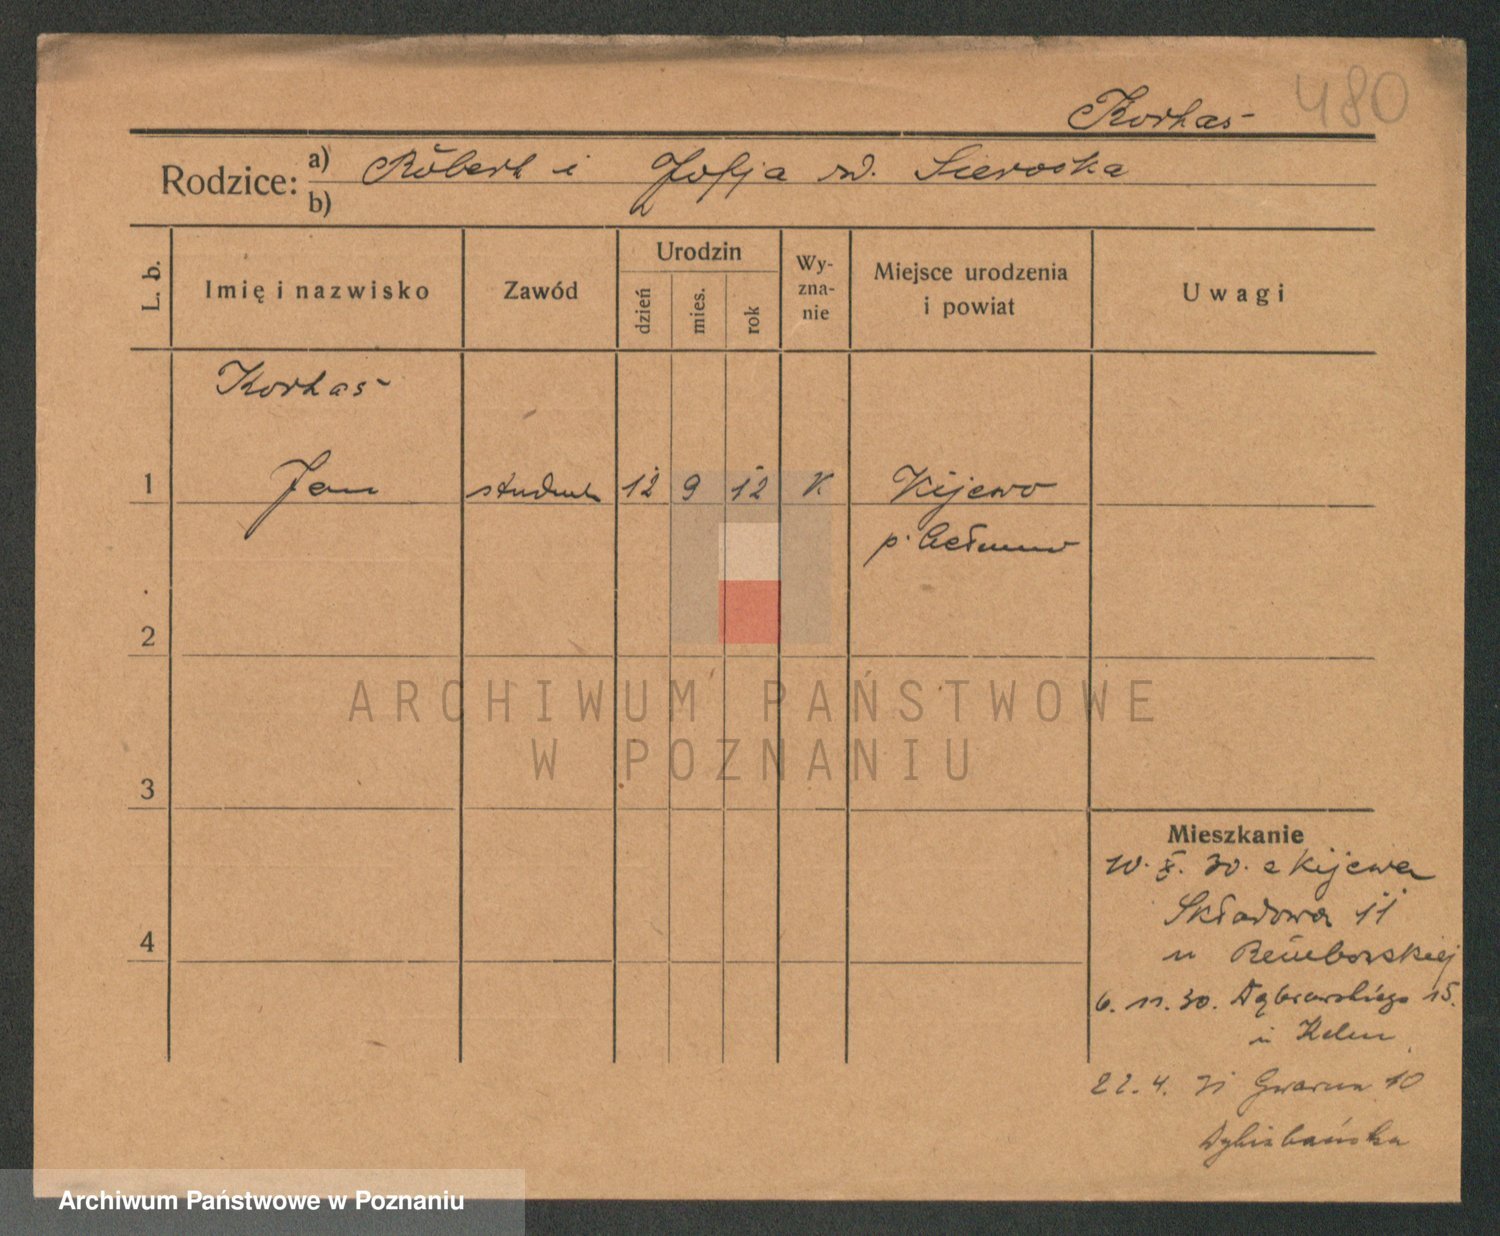 Korhas
480
Rodzice: a) Robert i Zofja
b)
L. b.
Imię i nazwisko
Zawód
Urodzin
dzień
mies.
rok
Wy-
zna-
nie
Miejsce urodzenia
i powiat
Uwagi
Korhas
1 Jan student 12 9 12 K Kijewo
p.
2
ARCHIWUM PAŃSTWOWE
W POZNANIU
3
Mieszkanie
10. X. 30. z Kijewa
Składowa 11
4
u
6. 11. 30. Dąbrowskiego 15.
u
22. 4. 31 Gwarna 10
Archiwum Państwowe w Poznaniu